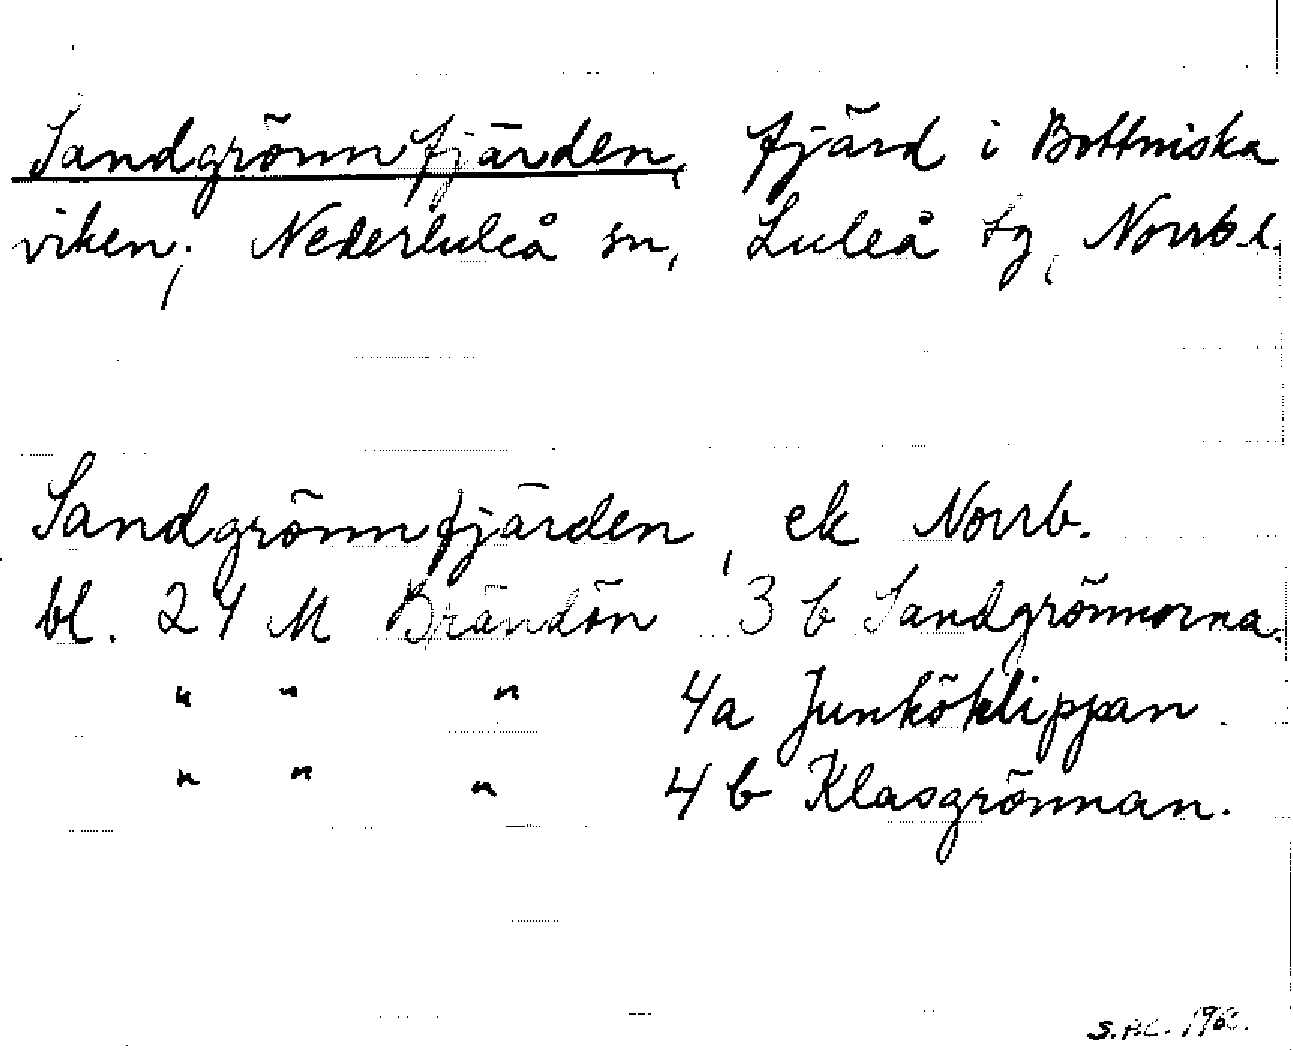 Sandgrönnfjärden, fjärd i Bottniska
viken; Nederluleå sn, Luleå tg, Norrb. l.
Sandgrönnfjärden, ek Norrb.
bl. 24 M Brändön 3 b Sandgrönnorna.
" " " 4a Junköklippan.
" " " 4 b Klasgrönnan.